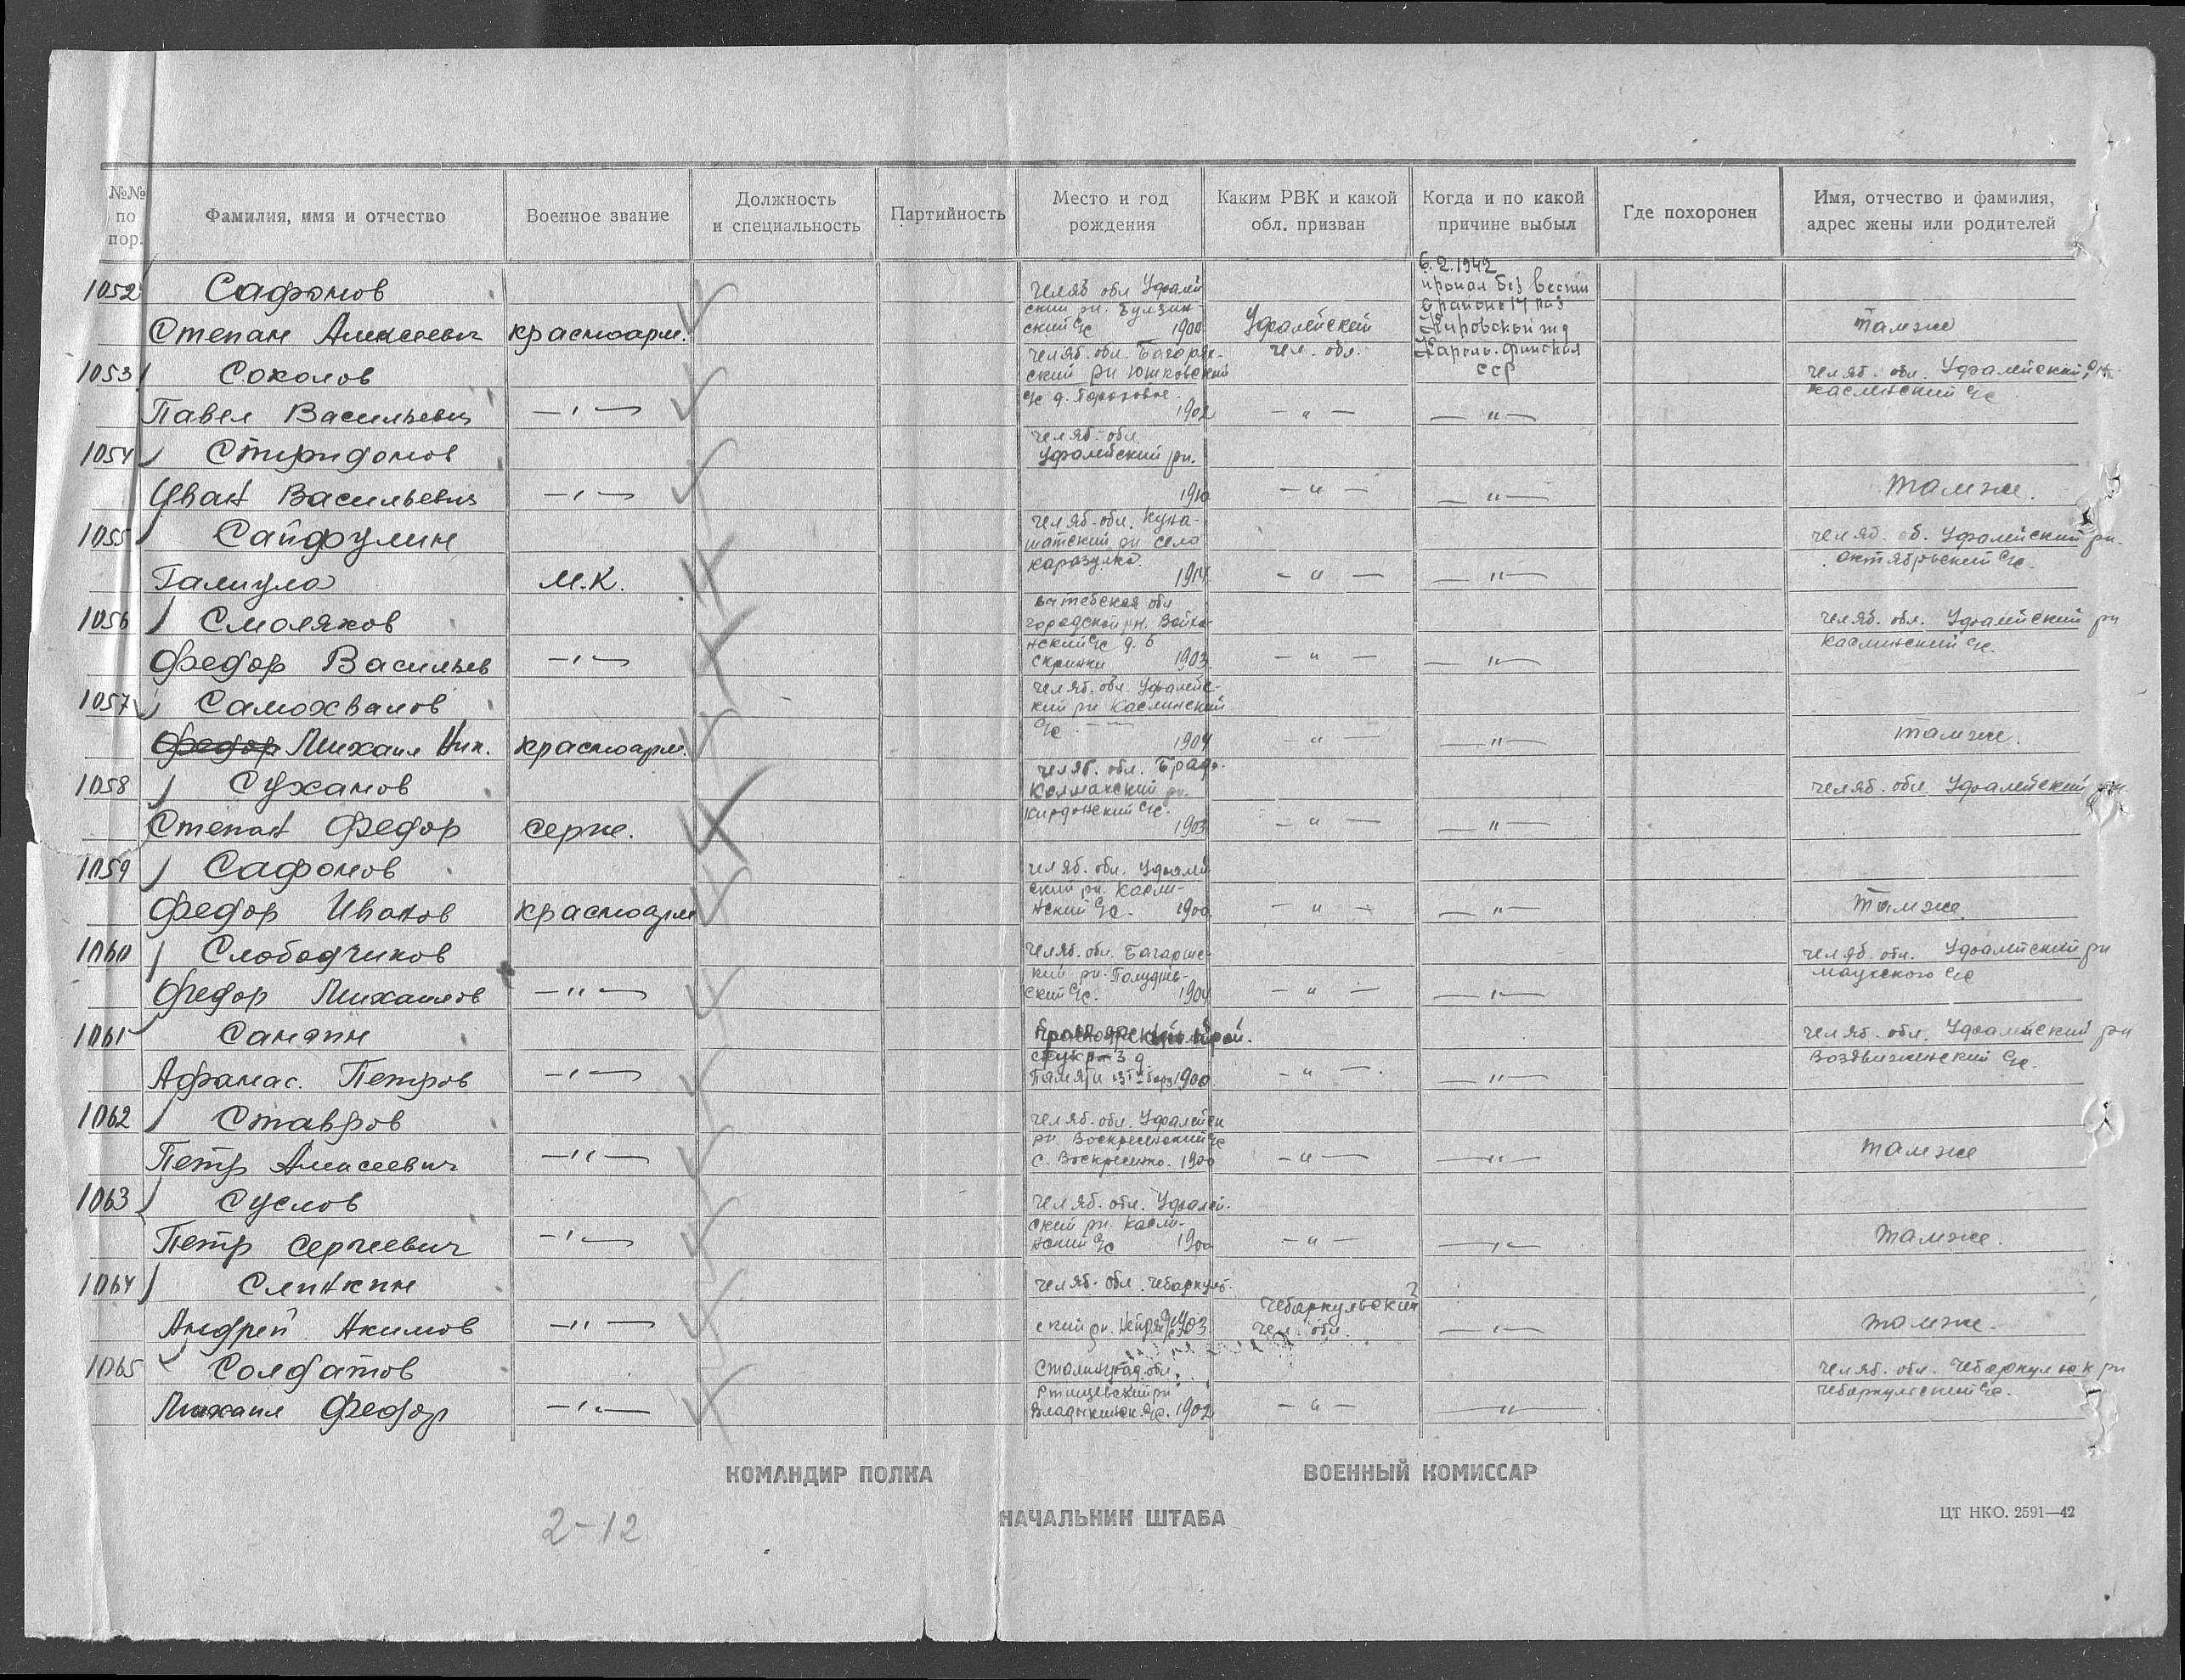 №№ по пор.
Фамилия, имя и отчество
Военное звание
Должность и специальность
Партийность
Место и год рождения
Каким РВК и какой обл. призван
Когда и по какой причине выбыл
Где похоронен
Имя, отчество и фамилия, адрес жены или родителей
1052 Сафонов
Степан Алексеевич красноарм.
Челяб обл Уфалей
ский рн. Булзин
ский с/с 1900
Уфалейский
чел. обл.
6.2.1942
пропал без вести
в районе 14 раз
Кировской жд
Карело-Финская
ССР
Там же
1053 Соколов
Павел Васильевич —"—
Челяб. обл. Багаряк-
ский рн Юшковский
с/с д. Гороховое.
1902
— " — — " —
Челяб. обл. Уфалейский рн.
Каслинский с/с
1054 Спиридонов
Иван Васильевич —"—
Челяб. обл.
Уфалейский рн.
1910
— " — — " —
Там же.
1055 Сайфулин
Галиула М.К.
Челяб. обл. Куна-
шакский рн село
1914
— " — — " —
Челяб. об. Уфалейский рн.
Октябрьский с/с.
1056 Смоляков
Федор Васильев —"—
Витебская обл
городской рн.
нский с/с д.
1903
— " — — " —
Челяб. обл. Уфалейский рн
Каслинский с/с.
1057 Самохвалов
Михаил Ник. красноарм.
Челяб. обл. Уфалейс-
кий рн Каслинский
с/с — " —
1904
— " — — " —
Там же.
1058 Суханов
Степан Федор серж.
Челяб. обл. Брадо-
Колмакский рн.
с/с.
1903
— " — — " —
Челяб. обл. Уфалейский рн
1059 Сафонов
Федор Иванов красноарм
Челяб. обл. Уфалей
ский рн. Касли-
нский с/с. 1900
— " — — " —
Там же
1060 Слободчиков
Федор Михайлов —"—
Челяб. обл. Багарякс-
кий рн.
ский с/с. 1904
— " — — " —
Челяб. обл. Уфалейский рн
Маукского с/с
1061 Санапин
Афанас. Петров —"—
Красноярский край.
Памяти 13ти борз 1900
— " — — " —
Челяб. обл. Уфалейский рн
Воздвиженский с/с.
1062 Ставров
Петр Алексеевич —"—
Челяб. обл. Уфалейск
рн Воскресенский с/с
с. Воскресенко. 1900
— " — — " —
Там же
1063 Суслов
Петр Сергеевич —"—
Челяб. обл. Уфалей-
ский рн. Касли-
нский с/с 1900
— " — — " —
Там же.
1064 Слинкин
Андрей Акимов —"—
Челяб. обл. Чебаркуль-
ский рн. 1903
Чебаркульский
чел. обл.
— " —
Там же.
1065 Солдатов
Михаил Федор —"—
Сталинград. обл.
Ртищевский рн
Владыкинск. с/с. 1902
— " — — " —
Челяб. обл. Чебаркульск рн
Чебаркульский с/с.
КОМАНДИР ПОЛКА ВОЕННЫЙ КОМИССАР
НАЧАЛЬНИК ШТАБА
2-12
ЦТ НКО. 2591—42